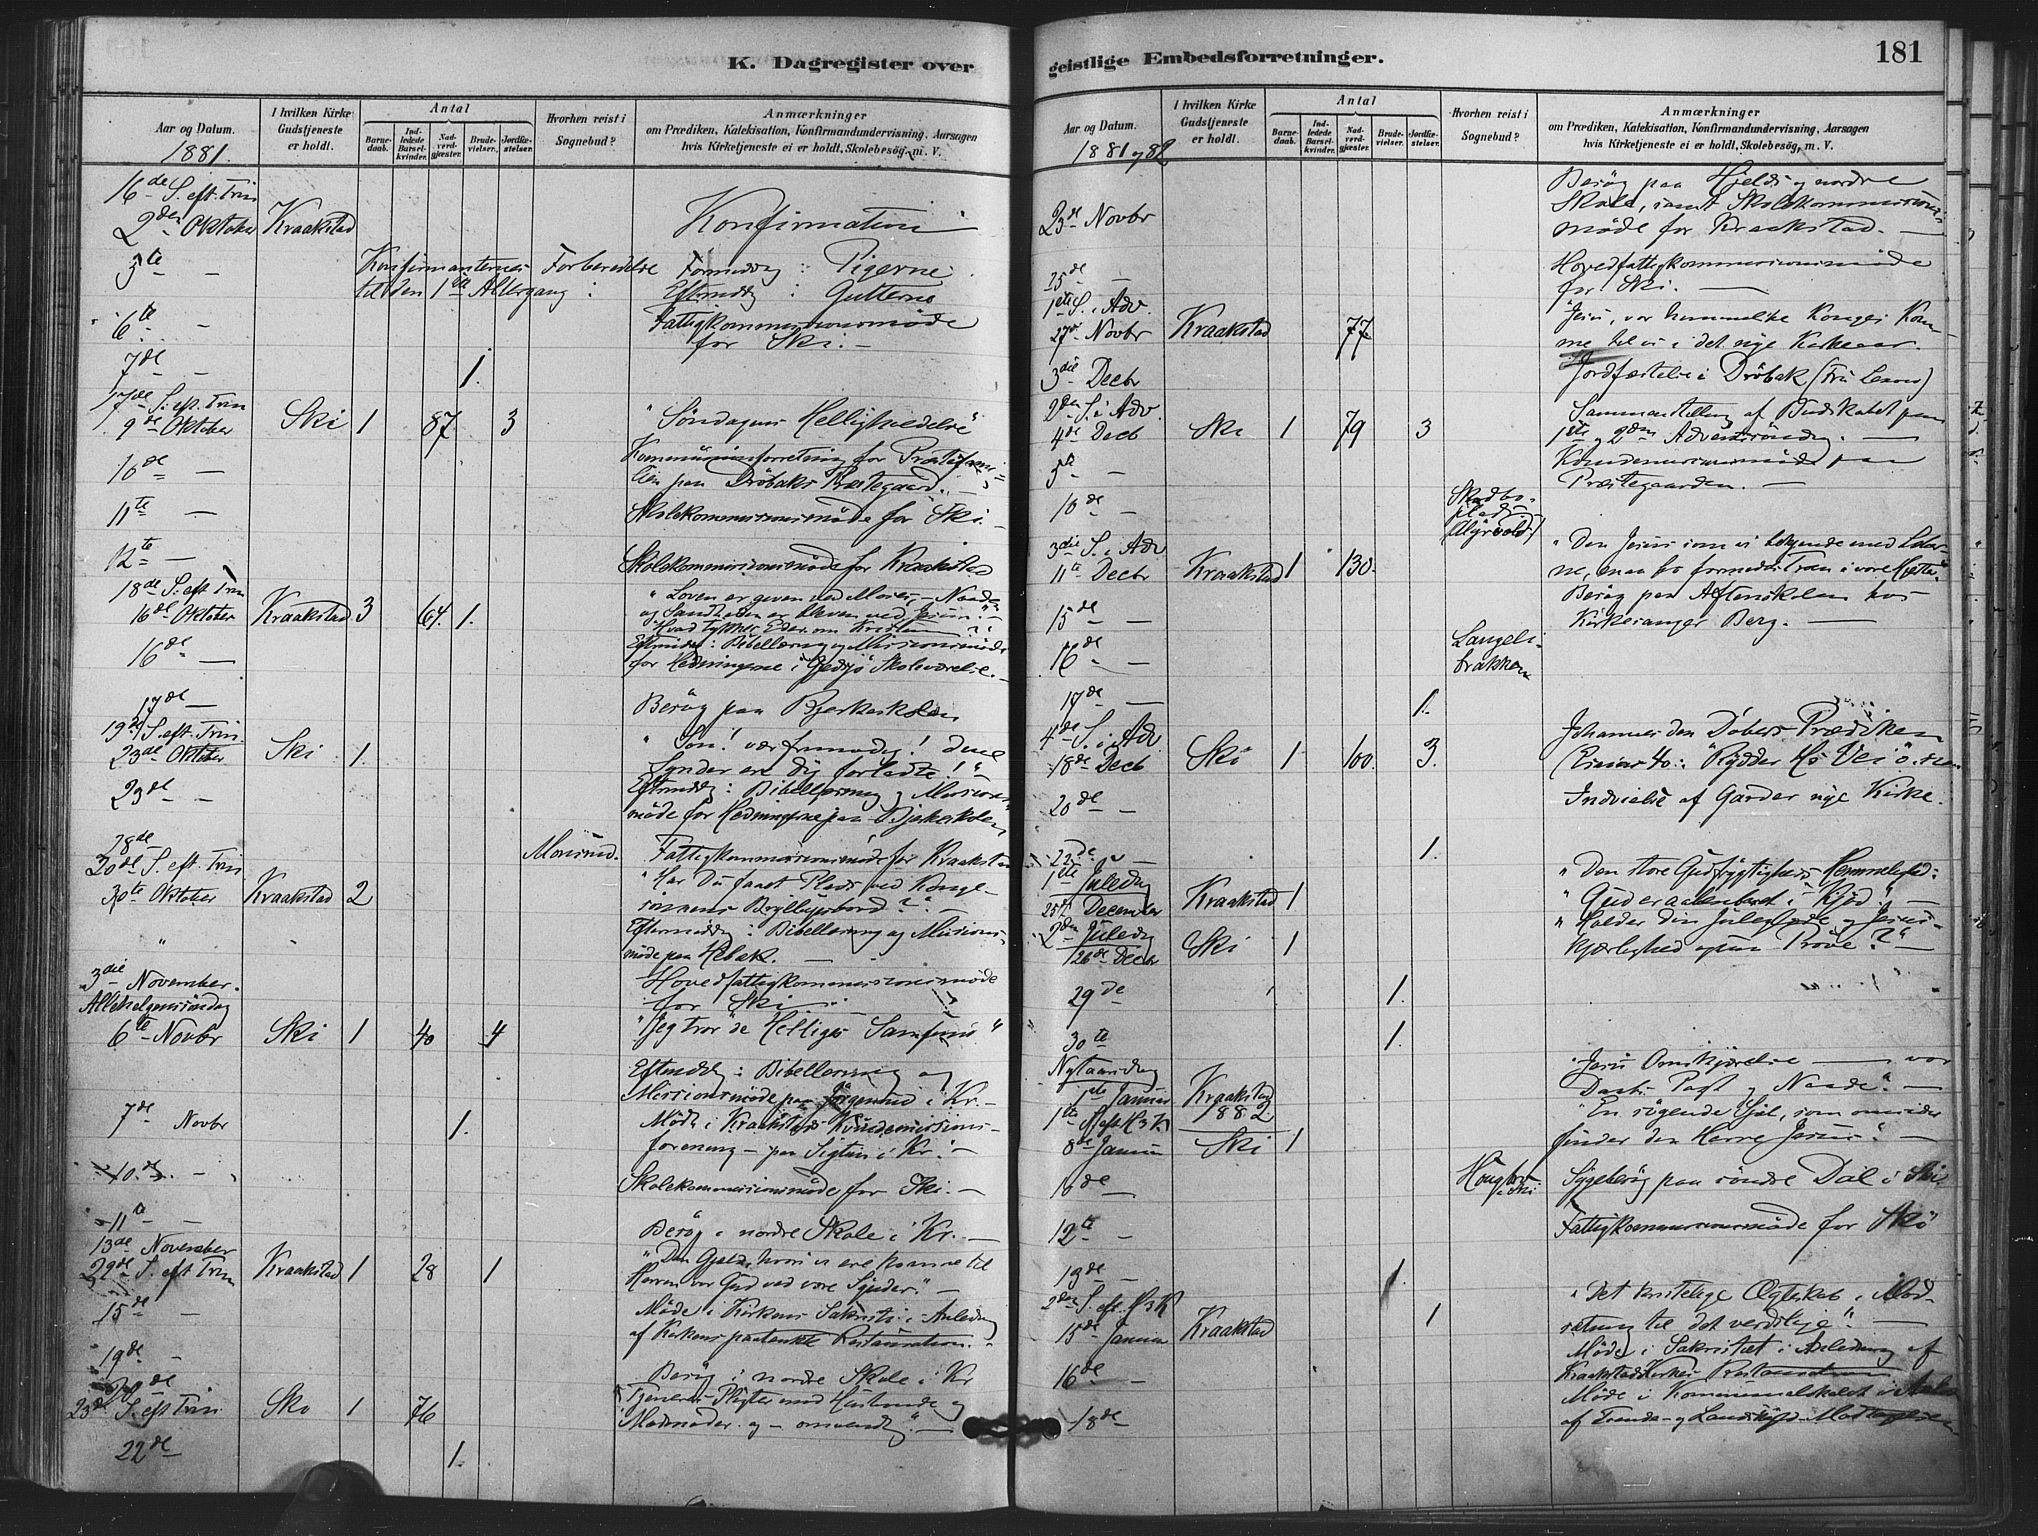 K. Dagregister over
Aar og Datum.
1881.
I hvilken Kirke
Gudstjeneste
er holdt.
Antal
Barne-
daab.
Ind-
ledede
Barsel-
kvinder.
Nad-
verd-
gjæster.
Brude-
vielser.
Jordfæ-
stelser.
Hvorhen reist i
Sognebud?
Anmærkninger
om Prædiken, Katekisation, Konfirmandundervisning, Aarsagen
hvis Kirketjeneste ei er holdt, Skolebesøg, m. V.
16de S. eft. Trin
2den Oktober Kraakstad Konfirmation
5te — Konfirmanternes Forberedelse Formiddag : Pigerne
til den 1ste Altergang : Eftmddg : Gutterne
6te — Fattigkommissionsmøde
for Ski. —
7de — 1.
17de S. eft. Trin
9de Oktober Ski 1 87 3 "Søndagens Helligholdelse"
10de —
paa Drøbaks Præstegaard. —
11te — Skolekommissionsmøde for Ski. —
12te — Skolekommissionsmøde for Kraakstad
18de S. eft Trin "Loven er given ved Moses, — Naaden
16de Oktober Kraakstad 3 64. 1. og Sandheden er bleven ved Jesum."
"Hvad tykkes Eder om Kristus?"
16de — Eftmidd : Bibellæsning og Missionsmøde
for Hedningerne i Gjedsjø Skoleværelse. —
17de — Besøg paa Bjerkeskolen
19de S. eft. Trin. "Søn! vær frimodig! dine
23de Oktober Ski 1. Synder ere dig forladte!"
23de — Eftmddg : Bibellæsning og Missions-
møde for Hedningerne paa Bjerkeskolen
28de Fattigkommissionsmøde for Kraakstad
20de S. eft. Trin "Har Du faaet Plads ved Konge-
30te Oktober Kraakstad 2 sønnens Bryllupsbord?" —
Eftermddg : Bibellæsning og Missions-
" møde paa Hebæk. —
3die November. Hovedfattigkommissionsmøde
Allehelgenssøndag for Ski. —
6te Novbr Ski 1 40 4 "Jeg tror" de Helliges Samfund"
Eftmddg : Bibellæsning og
Missionsmøde paa i Kr. —
7de Novbr 1. Møde i Kraakstads Kvindemissions-
forening — paa Sigtun i Kr. —
10de — Skolekommissionsmøde for Ski. —
11te — Besøg i nordre Skole i Kr. —
13de November "Den Gjæld, hvori vi ere komne til
22de S. eft Trin Kraakstad 1 28 1 Herren vor Gud ved vore Synder." —
15de — Møde i Kirkens Sakristi i Anledng
af Kirkens paatænkte Restauration. —
19de — Besøg i nordre Skole i Kr
20de
23de S. eft Trin Ski 1 76 Tjeneres Pligter mod Husbonde og
Madmoder og — omvendt." —
22de — 1.
geistlige Embedsforretninger.
181
Aar og Datum.
1881 og 82
I hvilken Kirke
Gudstjeneste
er holdt.
Antal
Barne-
daab.
Ind-
ledede
Barsel-
kvinder.
Nad-
verd-
gjæster.
Brude-
vielser.
Jordfæ-
stelser.
Hvorhen reist i
Sognebud?
Anmærkninger
om Prædiken, Katekisation, Konfirmandundervisning, Aarsagen
hvis Kirketjeneste ei er holdt, Skolebesøg, m. V.
Besøg paa Hjelds og nordre
23de Novbr Skole, samt Skolekommissions-
møde for Kraakstad. —
25de — Hovedfattigkommissionsmøde
for Ski. —
1ste S. i Adv. "Jesu, vor himmelske Konges Kom-
27de Novbr Kraakstad 77 me til os i det nye Kirkeaar.
3die Decbr Jordfæstelse i Drøbak
2den S. i Adv. Sammenstilling af Budskabet paa
4de Decb Ski 1 79 3 1ste og 2den Adventssøndag. —
5te — paa
Præstegaarden. —
10de —
3die S. i Adv "Den Jesus som vi
11te Decbr Kraakstad 1 130.
15de — Besøg paa Aftenskolen hos
Kirkesanger Berg. —
16de — Langeli-
brækken
17de — 1.
4de S. i Adv Johannes den Døbers Prædiken
18de Decb Ski 1 100. 3. (Esaias 40 : "Rydder Hs Vei"
20de — Indvielse af Garder nye Kirke.
22de — 1.
1ste Juledag "Den store Gudfrygtigheds Hemmelighed :
25de December Kraakstad 1 "Gud er aabenbaret i Kjød." —
2den Juledag Ski 1 "Holder din Juleglæde og Jesus-
26de Decbr kjærlighed ogsaa Prøve?" —
29de 1.
30te 1.
Nytaarsdag "Jesu Omskjærelse — vor
1ste Januar Kraakstad Daabs Pagt og Naade." —
1882
1ste S. eft. H3K "En søgende Sjæl, som omsider
8de Januar Ski 1 finder den Herre Jesus." —
10de — Sygebesøg paa søndre Dal i Ski
12te — Fattigkommissionsmøde for Ski
13de — 1.
2den S. eft. H3K "Det kristelige Ægteskab i Mod-
15de Januar Kraakstad 1 sætning til det verdslige". —
16de — Møde i Sakristiet i Anledning af
Kraakstad Kirkes Restauration
18de — Møde i Kommunelokalet i
af